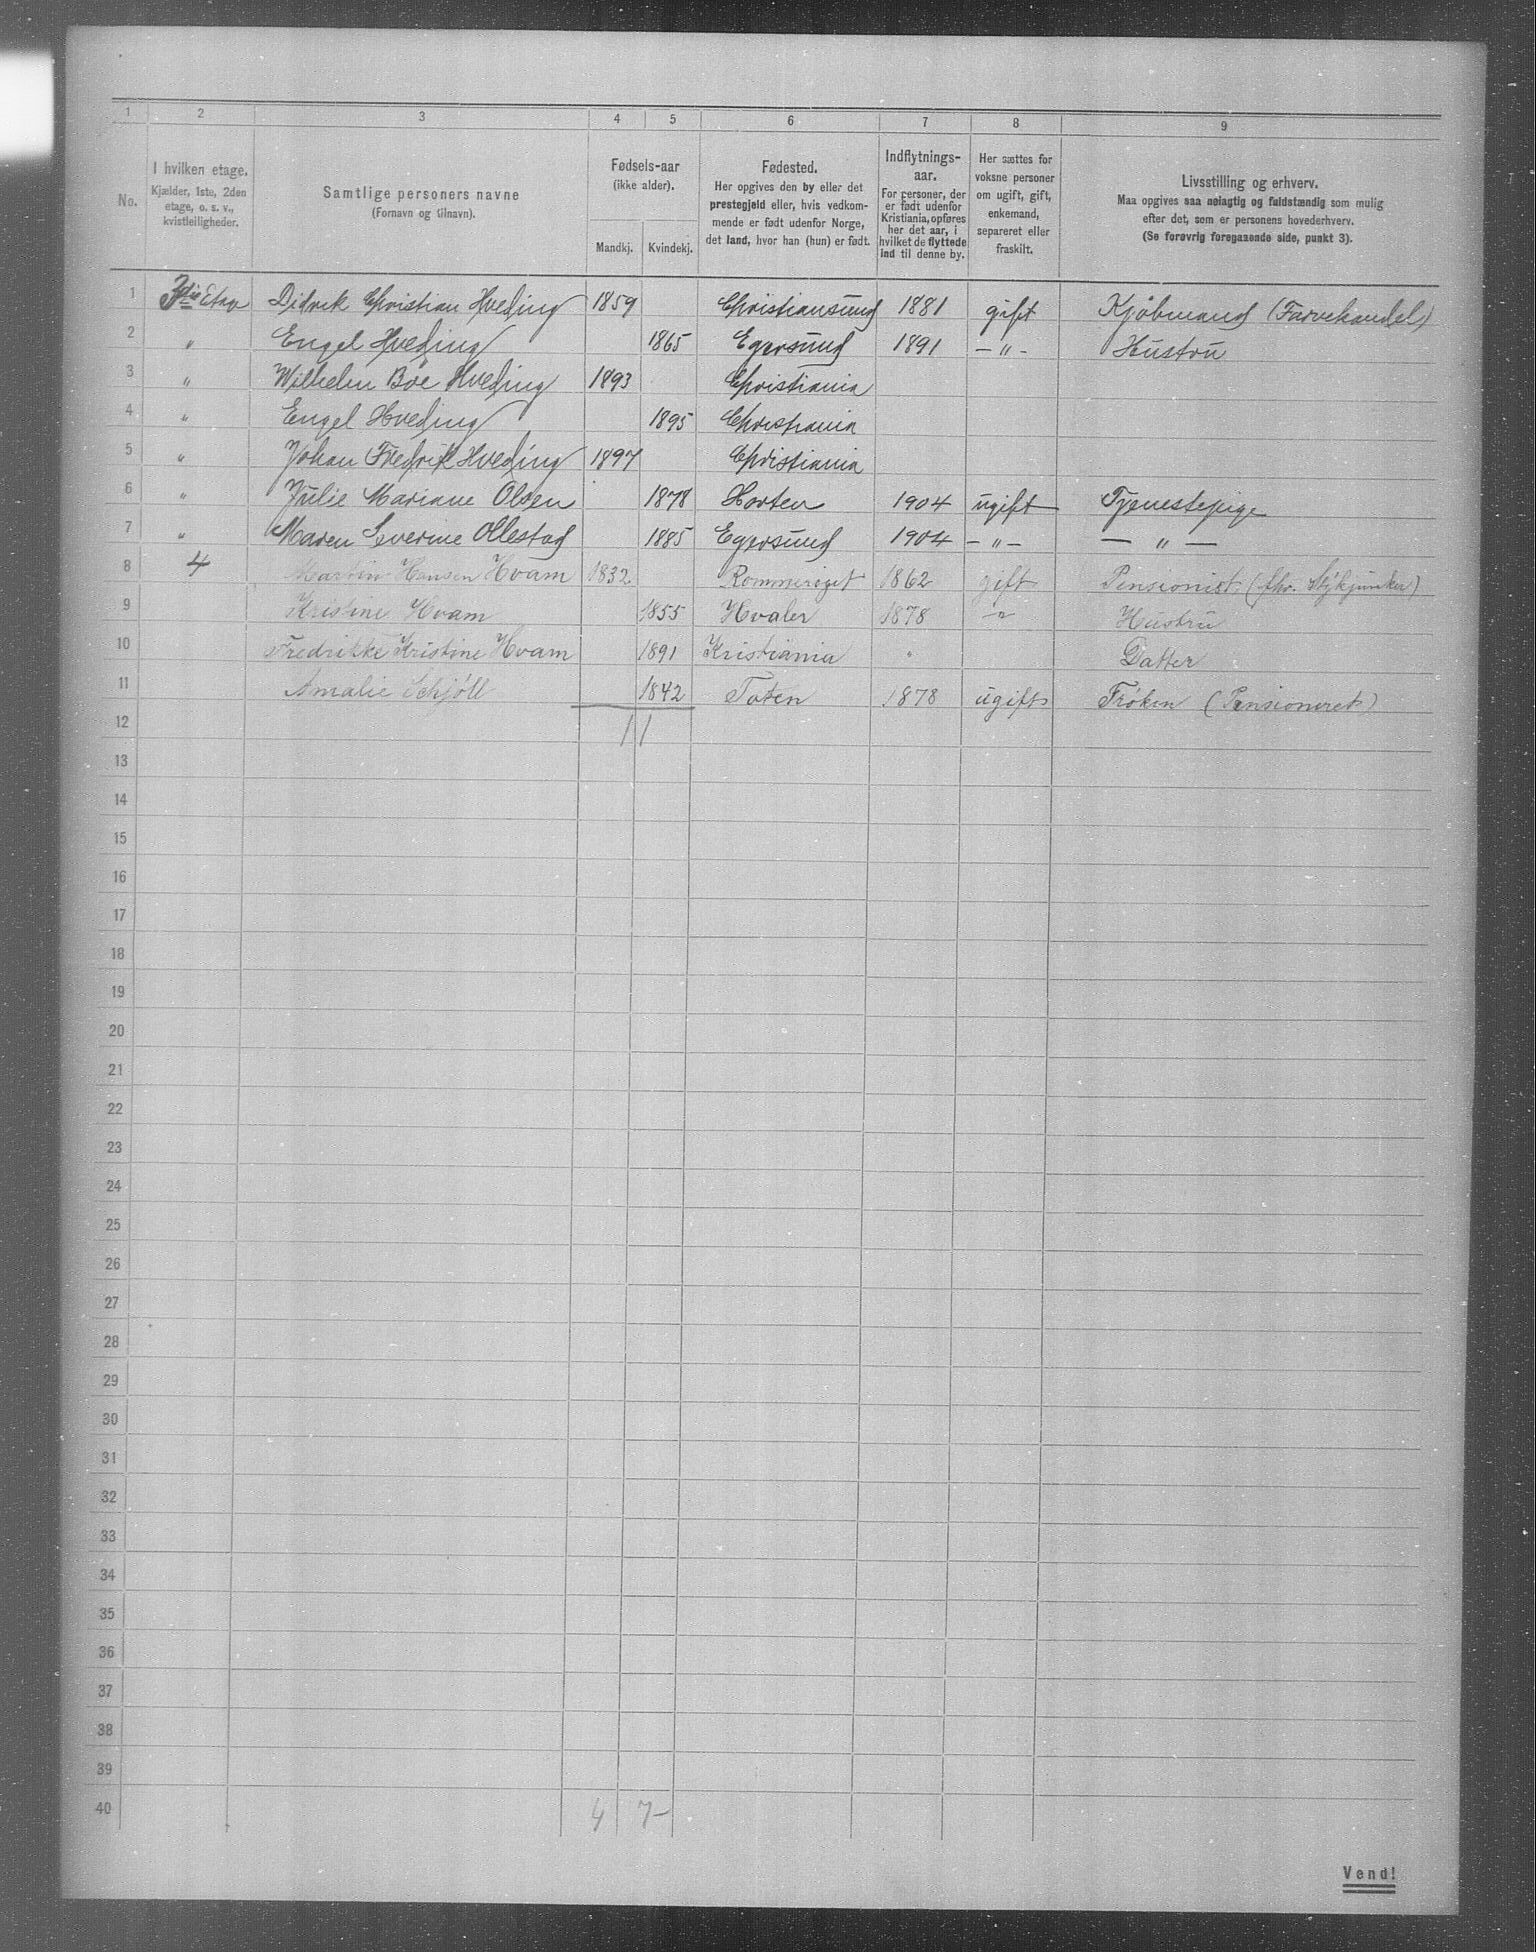 1 2 3 4 5 6 7 8 9
No. I hvilken etage. Kjælder, 1ste, 2den etage, o. s. v., kvistleiligheder. Samtlige personers navne (Fornavn og tilnavn). Fødsels-aar (ikke alder). Mandkj. Kvindekj. Fødested. Her opgives den by eller det prestegjeld eller, hvis vedkommende er født udenfor Norge, det land, hvor han (hun) er født. Indflytnings-aar. For personer, der er født udenfor Kristiania, opføres her det aar, i hvilket de flyttede ind til denne by. Her sættes for voksne personer om ugift, gift, enkemand, separeret eller fraskilt. Livsstilling og erhverv. Maa opgives saa nøiagtig og fuldstændig som mulig efter det, som er personens hovederhverv. (Se forøvrig foregaaende side, punkt 3).
1 3die Etage Didrik Christian Hveding 1859 Christiansund 1881 gift Kjøbmand (Farvehandel)
2 " Engel Hveding 1865 Egersund 1891 — " — Hustru
3 " Wilhelm Böe Hveding 1893 Christiania
4 " Engel Hveding 1895 Christiania
5 " Johan Fredrik Hveding 1897 Christiania
6 " Julie Mariane Olsen 1878 Horten 1904 ugift Tjenestepige
7 " Maren Severine Ollestad 1885 Egersund 1904 — " — — " —
8 4 Martin Hansen Hvam 1832 Rommeriget 1862 gift Pensionist (fhv. Stykjunker)
9 Kristine Hvam 1855 Hvaler 1878 " Hustru
10 Fredrikke Kristine Hvam 1891 Kristiania " Datter
11 Amalie Schjöll 1842 Toten 1878 ugift Frøken (Pensioneret)
12 11
13
14
15
16
17
18
19
20
21
22
23
24
25
26
27
28
29
30
31
32
33
34
35
36
37
38
39
40 4 7 —
Vend!